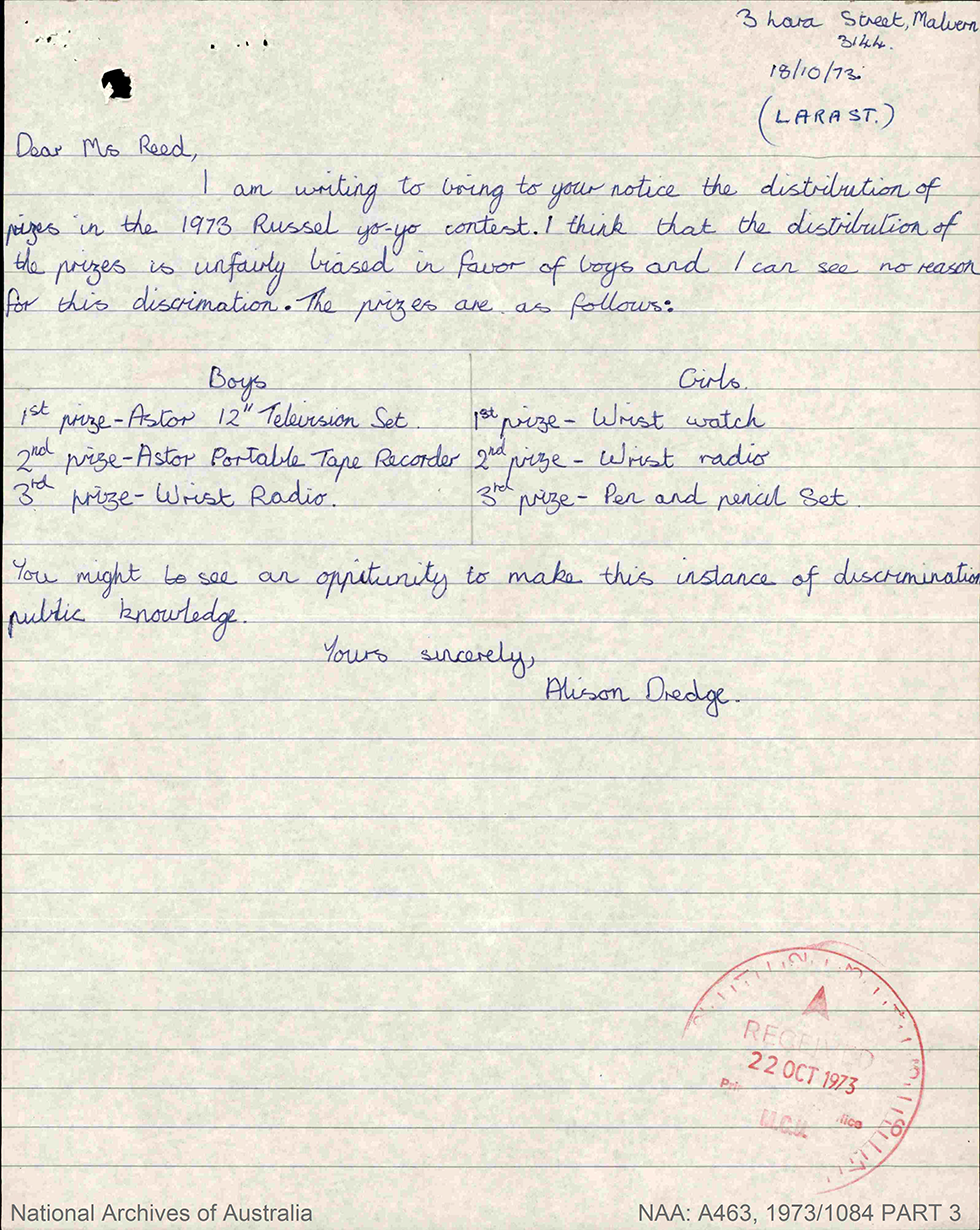 3 Lara Street, Malvern
3144.
18/10/73.
(LARA ST.)
Dear Ms Reed,
I am writing to bring to your notice the distribution of
prizes in the 1973 Russel yo-yo contest. I think that the distribution of
the prizes is unfairly biased in favor of boys and I can see no reason
for this discrimation. The prizes are as follows:
Boys
1st prize-Astor 12" Television Set.
2nd prize-Astor Portable Tape Recorder
3rd prize- Wrist Radio.
Girls.
1st prize- Wrist watch
2nd prize - Wrist radio
3rd prize- Pen and pencil Set.
You might to see an oppitunity to make this instance of discrimination
public knowledge.
Yours sincerely,
Alison Dredge.
RECEIVED
22 OCT 1973
National Archives of Australia
NAA: A463, 1973/1084 PART 3